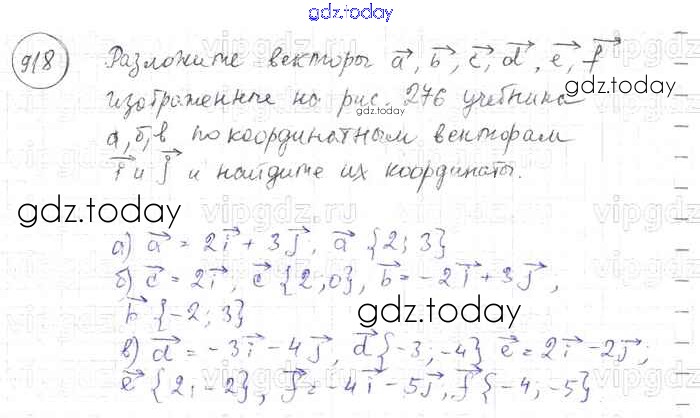 gdz.today
918 Разложите векторы a⃗, b⃗, c⃗, d⃗, e⃗, f⃗
изображенные на рис. 276 учебника
gdz.today
а, б, в по координатным векторам
i⃗ и j⃗ и найдите их координаты.
gdz.today
а) a⃗ = 2i⃗ + 3j⃗, a⃗ {2; 3}
б) c⃗ = 2i⃗, c⃗ {2; 0}, b⃗ = -2i⃗ + 3j⃗,
b⃗ {-2; 3}
gdz.today
в) d⃗ = -3i⃗ - 4j⃗, d⃗ {-3; -4} e⃗ = 2i⃗ - 2j⃗;
e⃗ {2; -2}, f⃗ = -4i⃗ - 5j⃗, f⃗ {-4; -5}